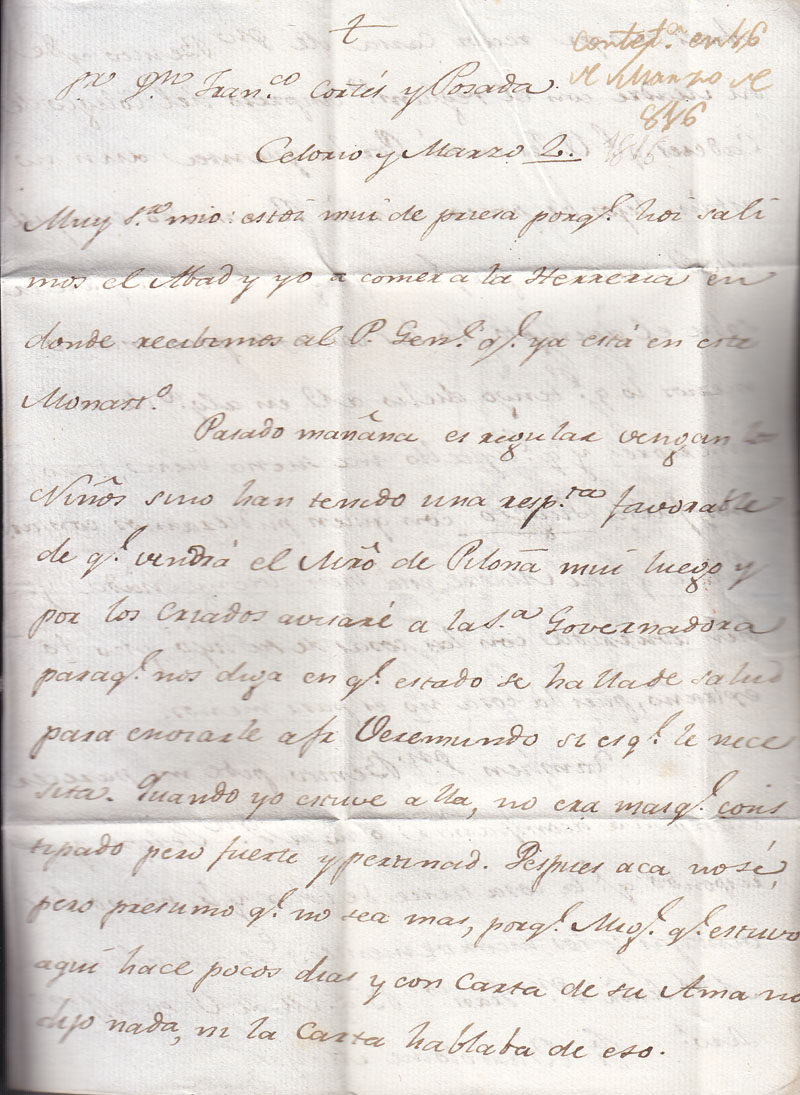 †
contest.on en 16
de Marzo de
816
Sr. Dn. Fran.co Cortés y Posada
Celorio y Marzo 2.
Muy S.or mio: estoi mui de priesa porq.e hoi sali
mos el Abad y yo a comer a la Herreria en
donde recibimos al P. Gen.l q.e ya está en este
Monast.o
Pasado mañana es regular vengan los
Niños sino han tenido una resp.ta favorable
de q.e vendrá el Mrõ de Piloña mui luego y
por los criados avisaré a la S.a Governadora
paraq.e nos diga en q.e estado se halla de salud
para enviarle a fr Veremundo si es q.e le nece
sita. Quando yo estuve alla, no era mas q.e cons
tipado pero fuerte y pertinad. Despues aca no sé,
pero presumo q.e no sea mas, porq.e Mig.l q.e estuvo
aqui hace pocos dias y con Carta de su Ama no
dijo nada, ni la Carta hablaba de eso.